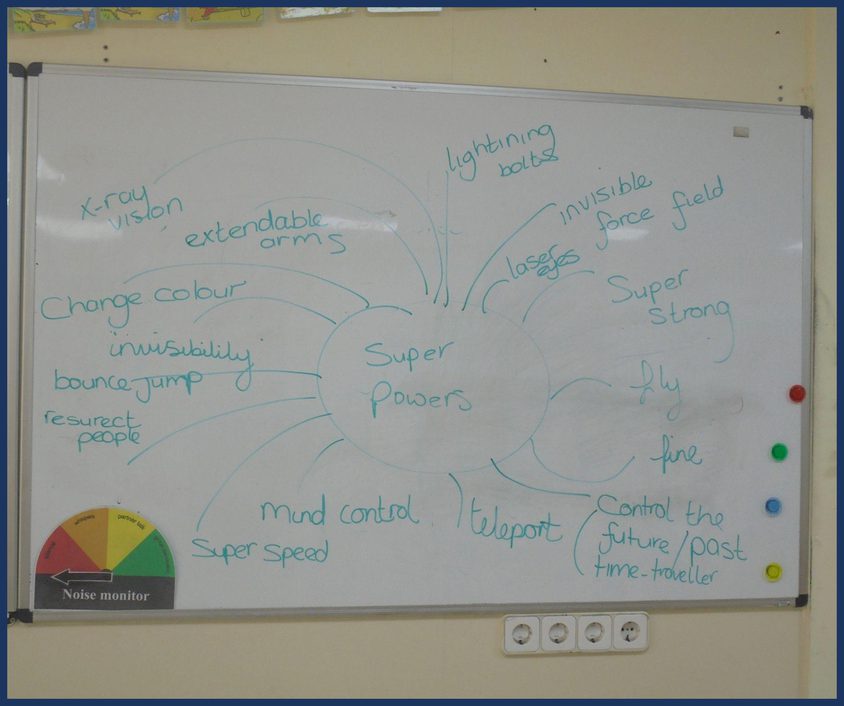 lightining
bolts
x-ray
vision
invisible
force field
extendable
arms
laser
eyes
Change colour
Super
Strong
invisibility
Super
Powers
bounce jump
fly
resurect
people
fire
mind control
teleport
Control the
future/past
time-traveller
Super Speed
partner talk
Noise monitor